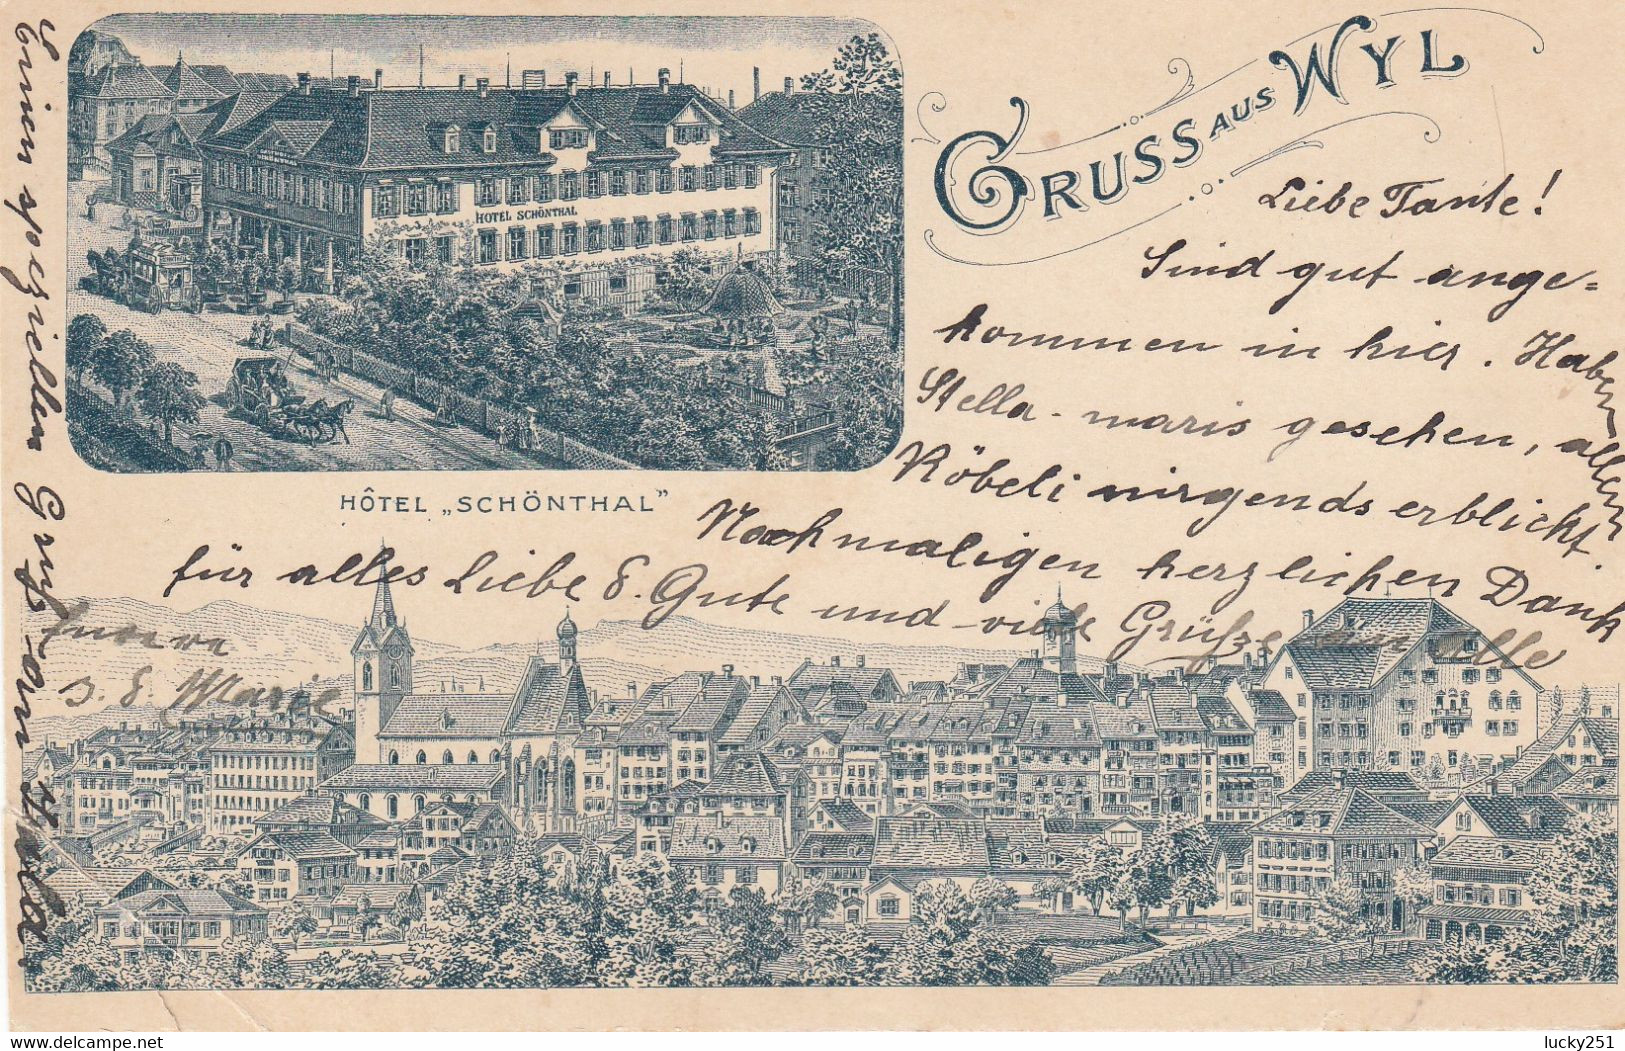 GRUSS AUS WYL
HOTEL SCHÖNTHAL
HÔTEL „SCHÖNTHAL”
Liebe Tante!
Sind gut ange=
kommen in hier. Haben
Stella-maris gesehen, allein
Röbeli nirgends erblickt.
Nochmaligen herzlichen Dank
für alles Liebe & Gute und viele Grüße an alle
Marie
Einen speziellen Gruß von
lucky251
delcampe.net